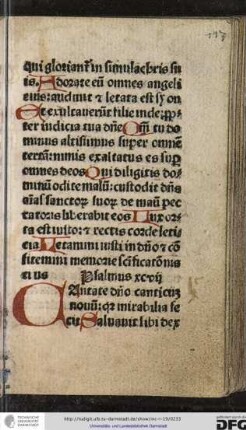 117
qui glorianť in simulacbris su
is. Adorate eū omnes angeli
tuis: audiuit et letata est syon
Et exultauerūt filie iude: ꝓp
ter iudicia tua dñe Qm̄ tu do
minus altissimus super omnē
terrā: nimis exaltatus es sup
omnes deos Qui diligitis do
minū odite malū: custodit dñs
aīas sanctoꝝ suoꝝ de manū pec
catoris liberabit eos Lux or
ta est iusto: et rectis corde leti
cia Letamini iusti in dño et cō
fitemini memorie scīficatōnis
ei us Psalmus xcvij
CAntate dño canticū
nouū: qꝛ mirabilia fe
cit, Saluauit sibi dex
http://tudigit.ulb.tu-darmstadt.de/show/inc-iv-150/0233
Universitäts- und Landesbibliothek Darmstadt
DFG